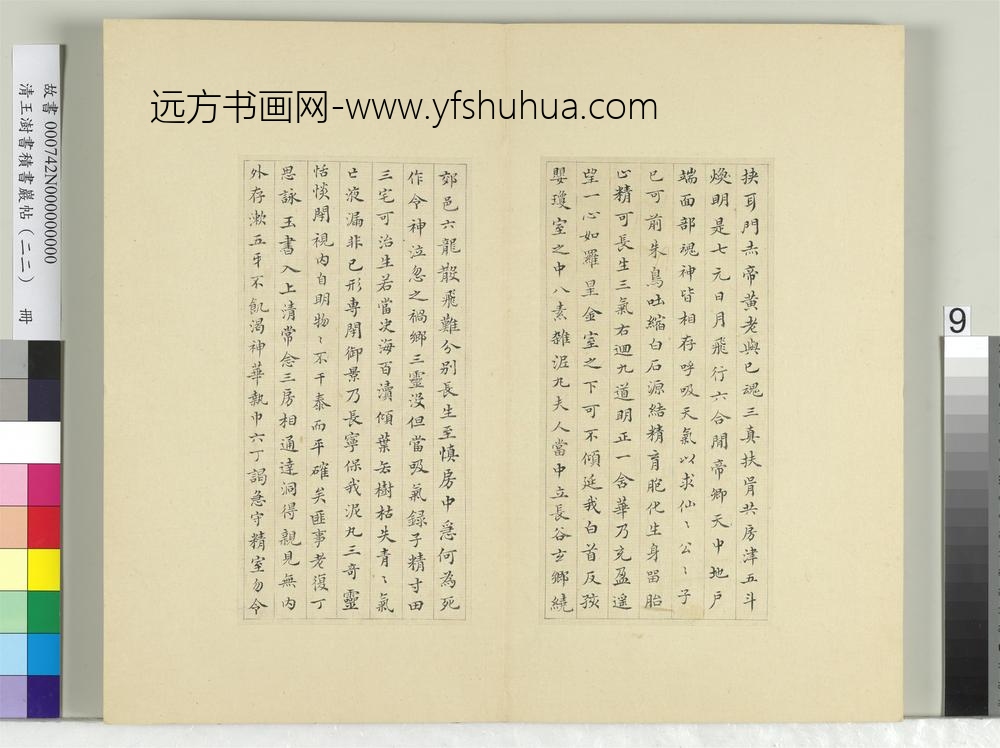 远方书画网-www.yfshuhua.com
故書 000742N000000000
清王澍書積書巖帖(二二) 冊
9
挾耳門赤帝黃老與己魂三真扶胥共房津五斗
煥明是七元日月飛行六合間帝卿天中地戶
端面部魂神皆相存呼吸天氣以求仙〻公〻子
已可前朱鳥吐縮白石源結精育胞化生身留胎
止精可長生三氣右迴九道明正一含華乃充盈遥
望一心如羅星金室之下可不傾延我白首反孩
嬰瓊室之中八素雜泥丸夫人當中立長谷玄鄉繞
郊邑六龍散飛難分别長生至慎房中急何為死
作令神泣忽之禍鄉三靈没但當吸氣録子精寸田
三宅可治生若當决海百瀆傾葉去樹枯失青〻氣
亡液漏非己形專閉御景乃長寧保我泥丸三奇靈
恬惔閉視內自明物〻不干泰而平確矣匪事老復丁
思詠玉書入上清常念三房相通達洞得親見無內
外存漱五牙不飢渴神華執巾六丁謁急守精室勿令